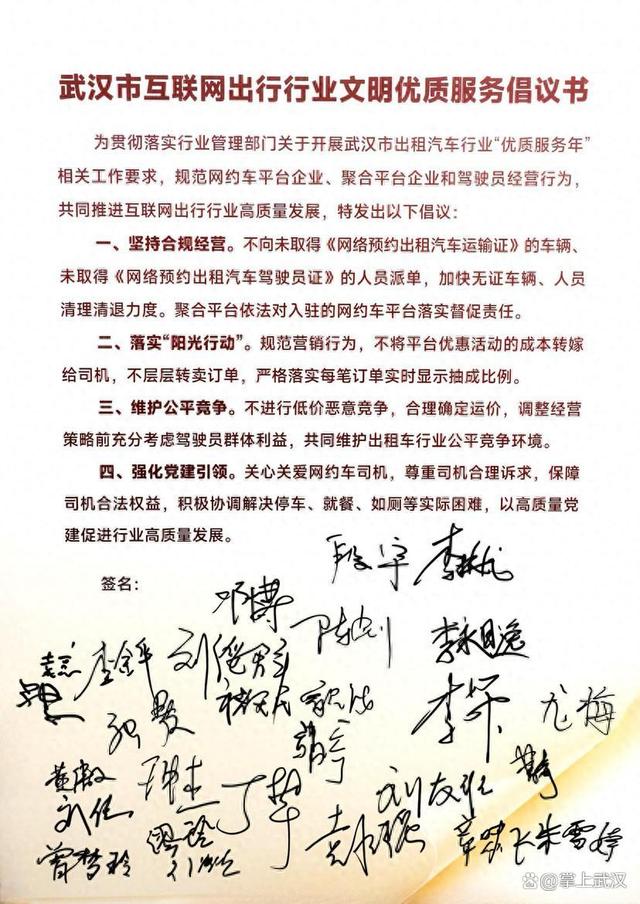 武汉市互联网出行行业文明优质服务倡议书
为贯彻落实行业管理部门关于开展武汉市出租汽车行业“优质服务年”
相关工作要求，规范网约车平台企业、聚合平台企业和驾驶员经营行为，
共同推进互联网出行行业高质量发展，特发出以下倡议：
一、坚持合规经营。不向未取得《网络预约出租汽车运输证》的车辆、
未取得《网络预约出租汽车驾驶员证》的人员派单，加快无证车辆、人员
清理清退力度。聚合平台依法对入驻的网约车平台落实督促责任。
二、落实“阳光行动”。规范营销行为，不将平台优惠活动的成本转嫁
给司机，不层层转卖订单，严格落实每笔订单实时显示抽成比例。
三、维护公平竞争。不进行低价恶意竞争，合理确定运价，调整经营
策略前充分考虑驾驶员群体利益，共同维护出租车行业公平竞争环境。
四、强化党建引领。关心关爱网约车司机，尊重司机合理诉求，保障
司机合法权益，积极协调解决停车、就餐、如厕等实际困难，以高质量党
建促进行业高质量发展。
签名：
段宇
邓博
尤梅
曾梦玲
朱雪婷
@掌上武汉